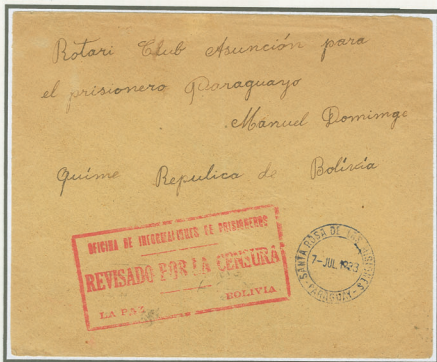 Rotari Club Asunción para
el prisionero Paraguayo
Manuel Domingo
Quime Repulica de Bolívia
OFICINA DE INFORMACIONES DE PRISIONEROS
REVISADO POR LA CENSURA
LA PAZ BOLIVIA
SANTA ROSA DE LAS MISIONES
7-JUL.1933
PARAGUAY